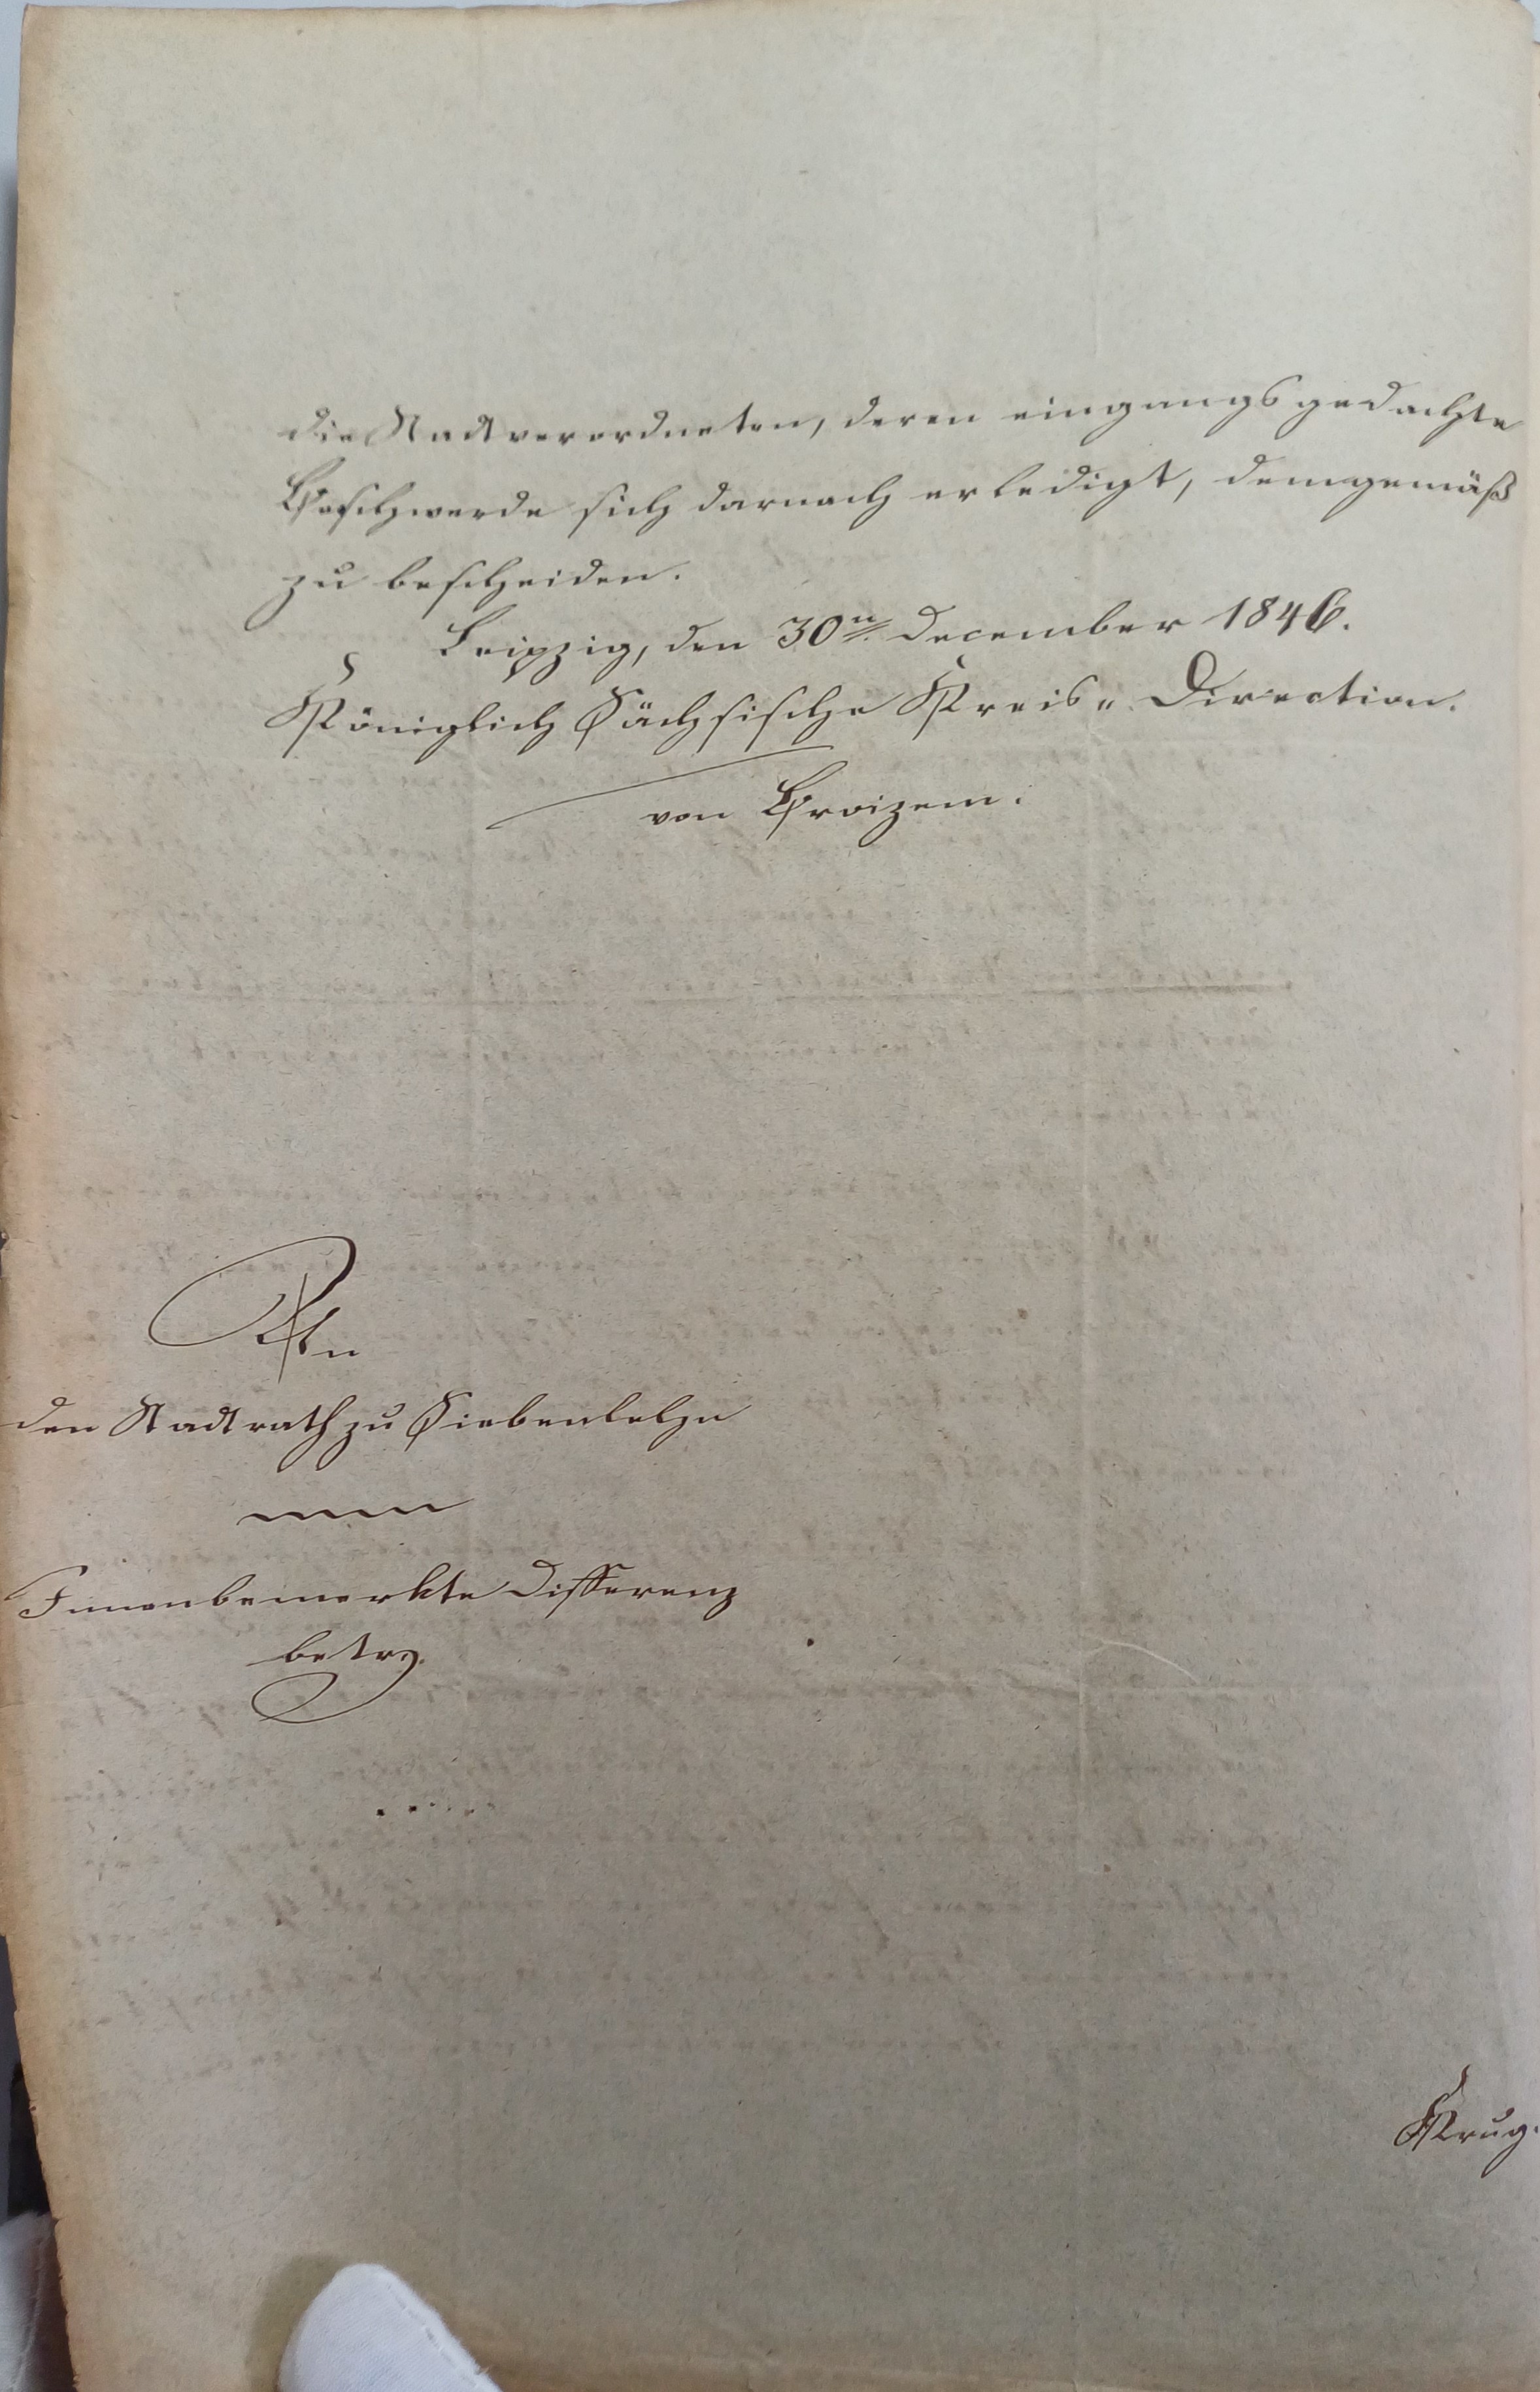 die Stadtverordneten, deren eingangsgedachte
Beschwerde sich darnach erledigt, demgemäß
zu bescheiden.
Leipzig, den 30n. December 1846.
Königlich Sächsische Kreis-Direction.
von Broizem.
An
den Stadtrath zu Siebenlehn
Innenbemerkte Differenz
betrg.
Krug.